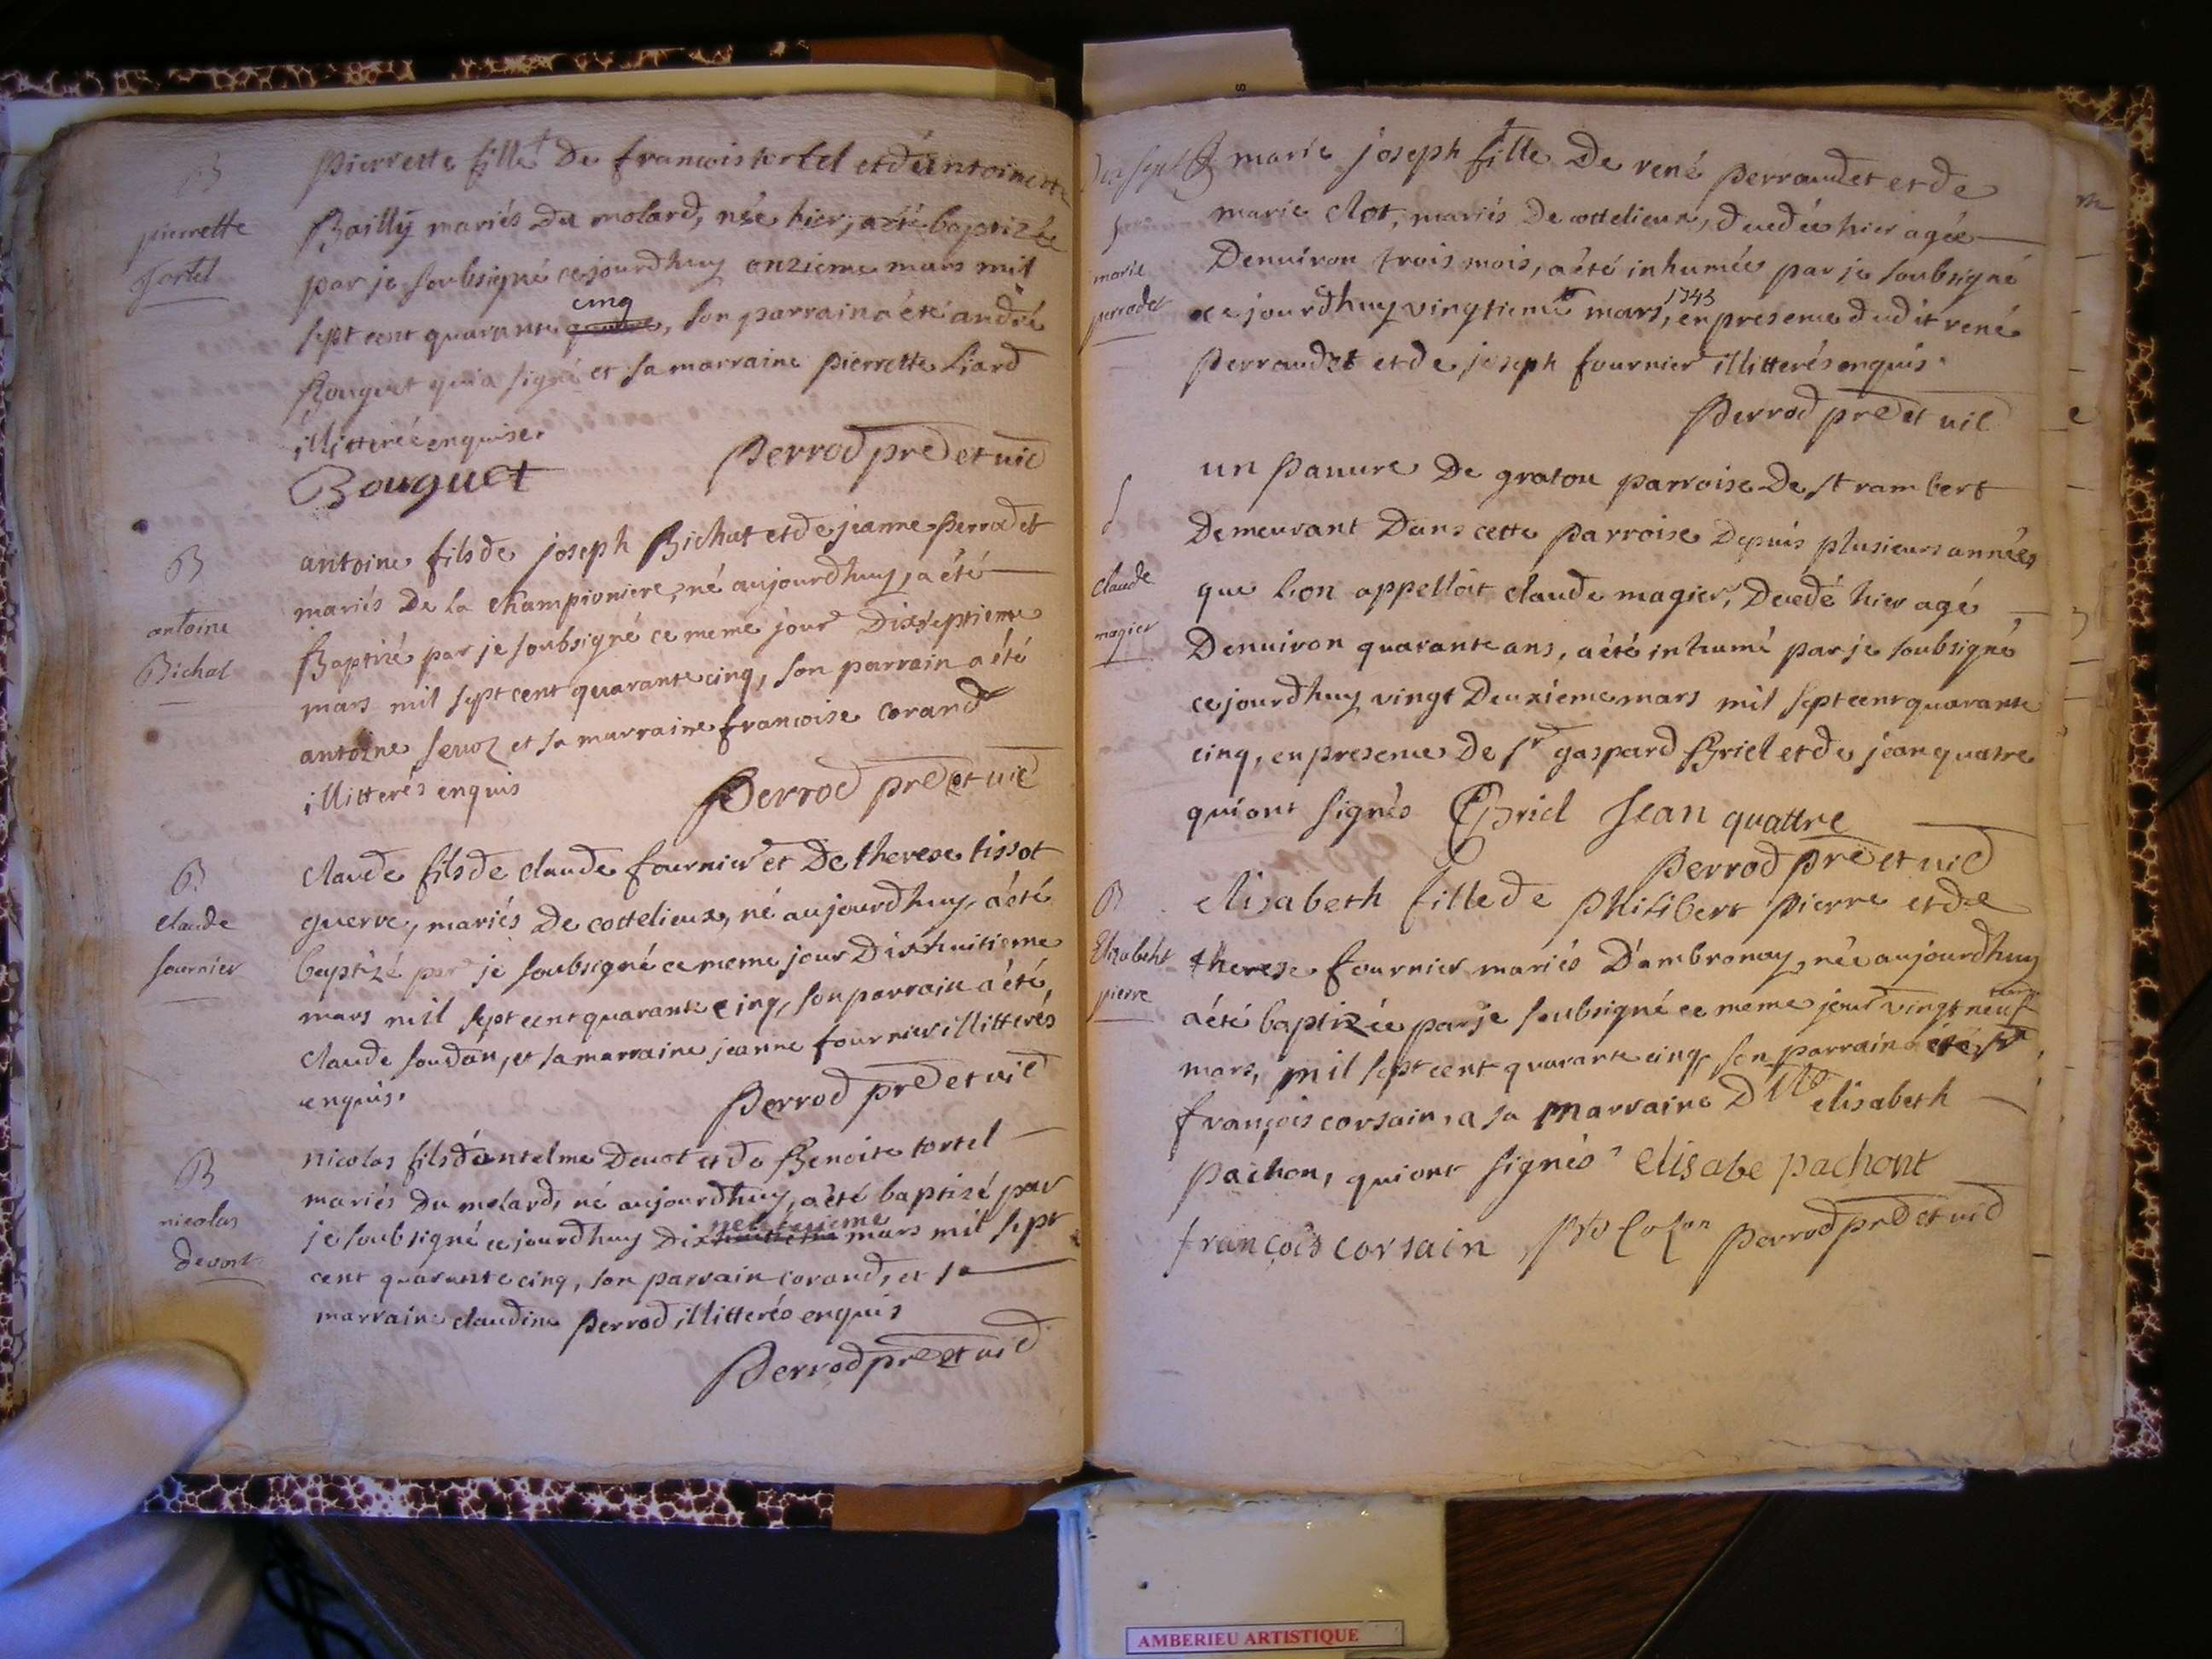 B
pierrette
tortel
pierrette fille De francois tortel et d'antoinette
Bailly mariés Du molard, née hier, a été baptizée
par je soubsigné cejourdhuy onzieme mars mil
cinq
sept cent quarante quatre, son parrain a été andré
Bouguet qui a signé et sa marraine pierrette Liard
illitterée enquise.
Bouguet
Perrod pre et vic
B
antoine
Bichat
antoine fils de joseph Bichat et de jeanne perrodet
mariés De la championiere, né aujourdhuy, a été
Baptizé par je soubsigné ce meme jour Dixseptieme
mars mil sept cent quarante cinq, son parrain a été
antoine sevoz et sa marraine francoise corand
illitterés enquis
Perrod pre et vic
B
claude
fournier
claude fils de claude fournier et De therese tissot
guerre, mariés De cottelieux, né aujourdhuy, a été
baptizé par je soubsigné ce meme jour Dixhuitieme
mars mil sept cent quarante cinq, son parrain a été,
claude soudan, et sa marraine jeanne fournier illitterés
enquis.
Perrod pre et vic
B
nicolas
devot
nicolas fils d'antelme Devot et de Benoite tortel
mariés Du molard, né aujourdhuy, a été baptizé par
neuvieme
je soubsigné cejourdhuy Dixhuitieme mars mil sept
cent quarante cinq, son parrain corand, et sa
marraine claudine perrod illitterés enquis
Perrod pre et vic
marie
perrodet
marie joseph fille De rené perraudet et de
marie clot, mariés De cottelieux, decedée hier agée
Denviron trois mois, a été inhumée par je soubsigné
1745
ce jourdhuy vingtieme mars, en presence dudit rené
perraudet et de joseph fournier illitterés enquis.
Perrod pre et vic
S
claude
magier
un pauvre De gratou parroise De st rambert
Demeurant Dans cette parroise Depuis plusieurs années
que Lon appelloit claude magier, Decedé hier agé
Denviron quarante ans, a été inhumé par je soubsigné
cejourdhuy vingt Deuxieme mars mil sept cent quarante
cinq, en presence De sr gaspard Briel et de jean quatre
qui ont signés Briel Jean quattre
Perrod pre et vic
B
Elizabeht
pierre
elisabeth fille de philibert pierre et de
therese fournier mariés D'ambronay, née aujourdhuy
a été baptizée par je soubsigné ce meme jour vingt neuf
mars, mil sept cent quarante cinq, son parrain a été sr
françois corsain, a sa marraine Dlle elisabeth
pachon, qui ont signés elisabe pachont
françois corsain perrod pre et vic
AMBERIEU ARTISTIQUE